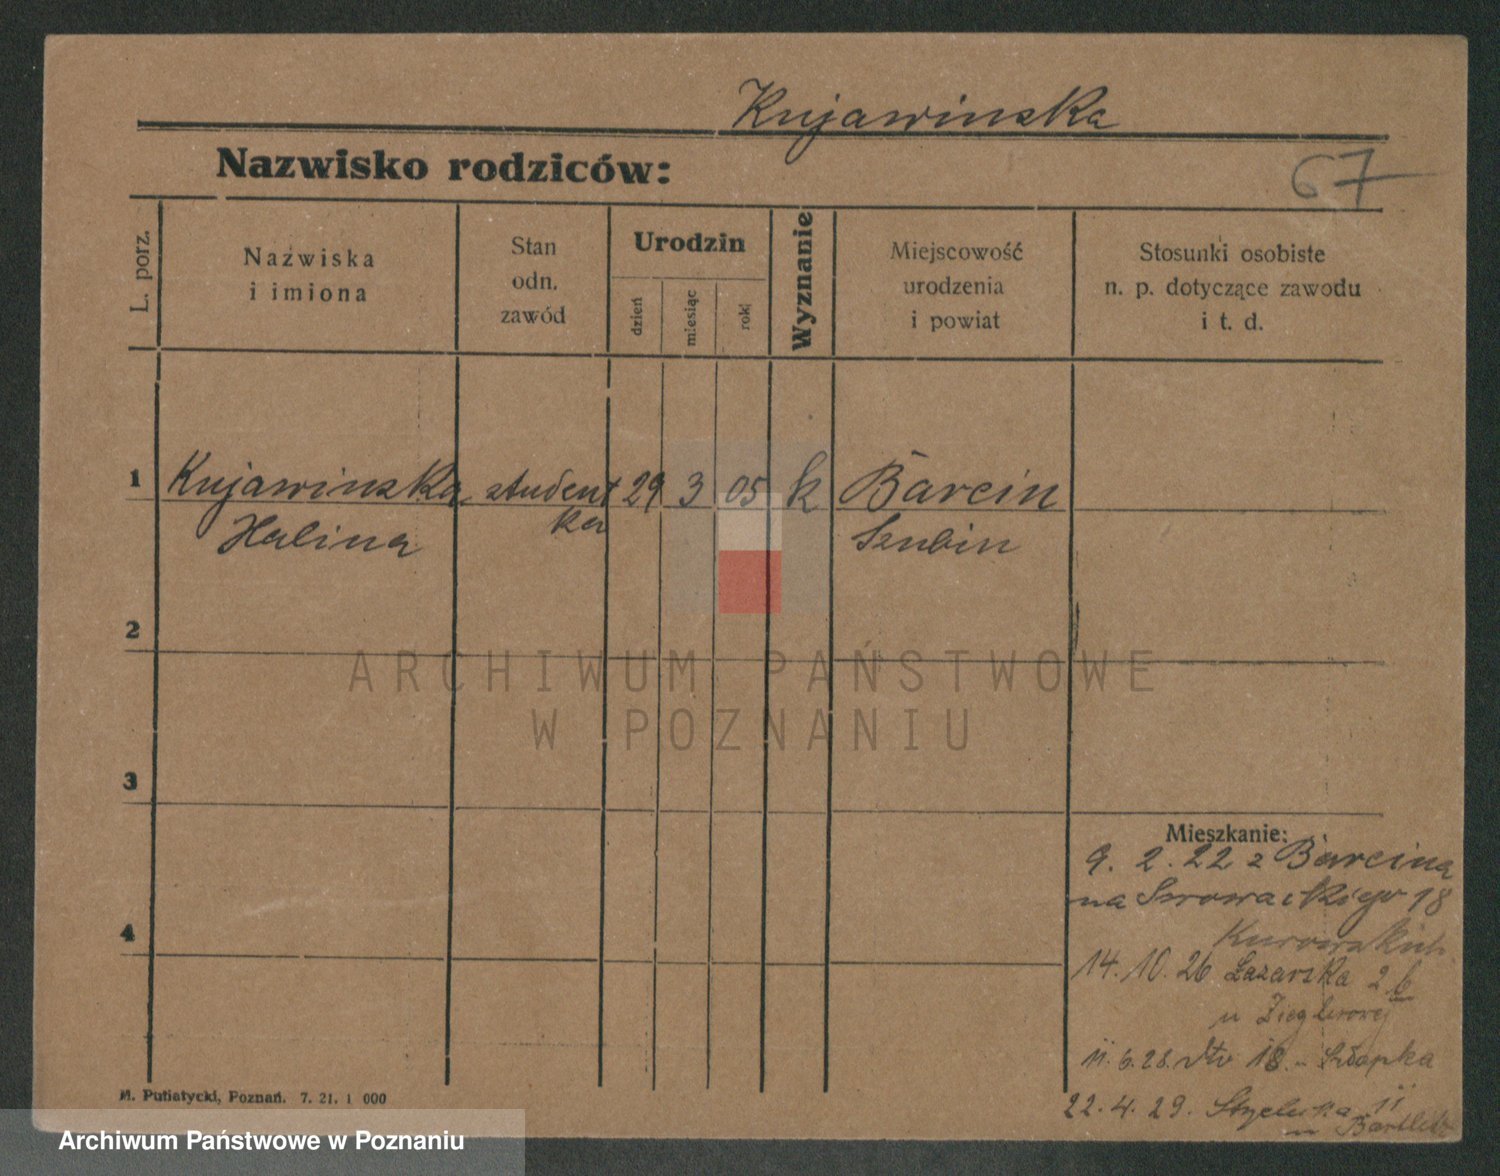 Kujawinska
Nazwisko rodziców:
67
L. porz.
Nazwiska
i imiona
Stan
odn.
zawód
Urodzin
dzień
miesiąc
rok
Wyznanie
Miejscowość
urodzenia
i powiat
Stosunki osobiste
n. p. dotyczące zawodu
i t. d.
1 Kujawinska student 29 3 05 k Barcin
Halina ka Szubin
2
ARCHIWUM PAŃSTWOWE
W POZNANIU
3
Mieszkanie:
9. 2. 22 z Barcina
na Słowackiego 18
4
Kurowskich
14. 10. 26 Łazarska 2b
u Zieglerowej
11. 6. 28. dto 18 - Szłapka
22. 4. 29. 11
u
M. Putiatycki, Poznań. 7. 21. 1 000
Archiwum Państwowe w Poznaniu